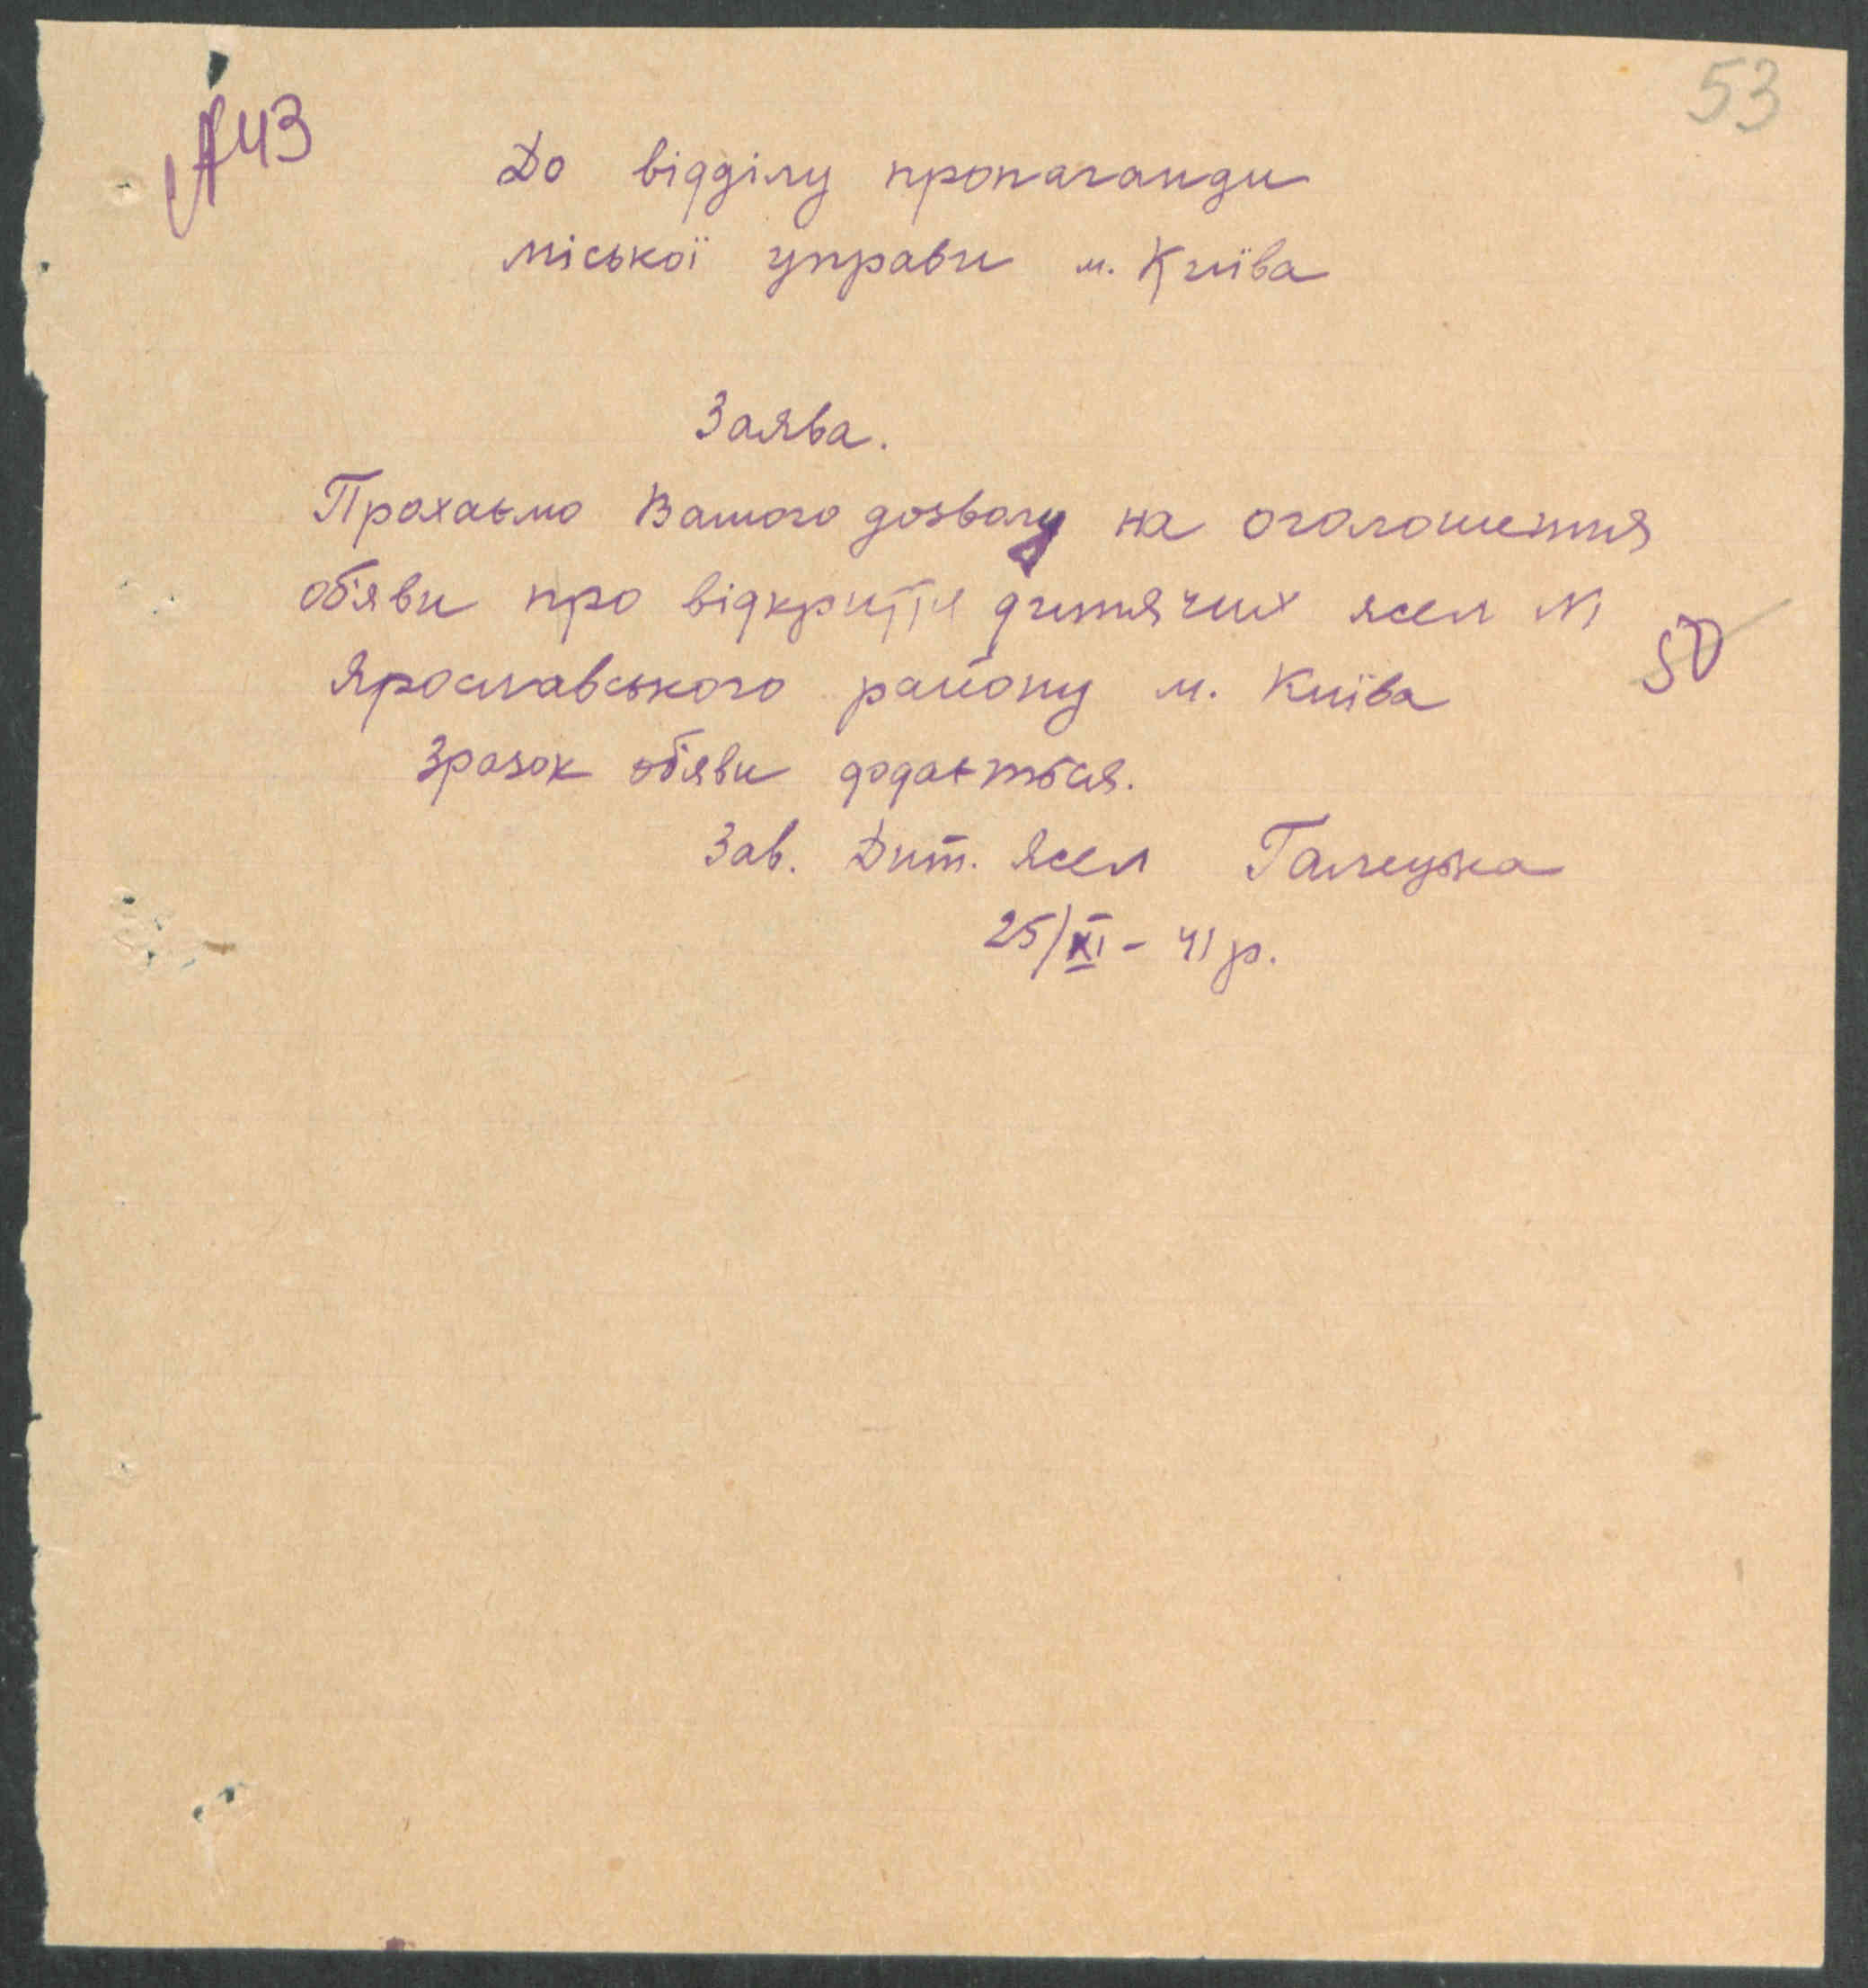 А43
53
До відділу пропаганди
міської управи м. Київа
Заява.
Прохаємо Вашого дозволу на оголошення
об'яви про відкриття дитячих ясел №1
Ярославського району м. Київа
50
Зразок об'яви додається.
Зав. Дит. Ясел
25/XI - 41 р.